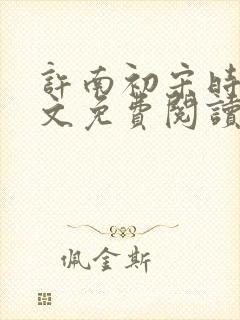 許南初宋時
文免費閱讀
佩金斯